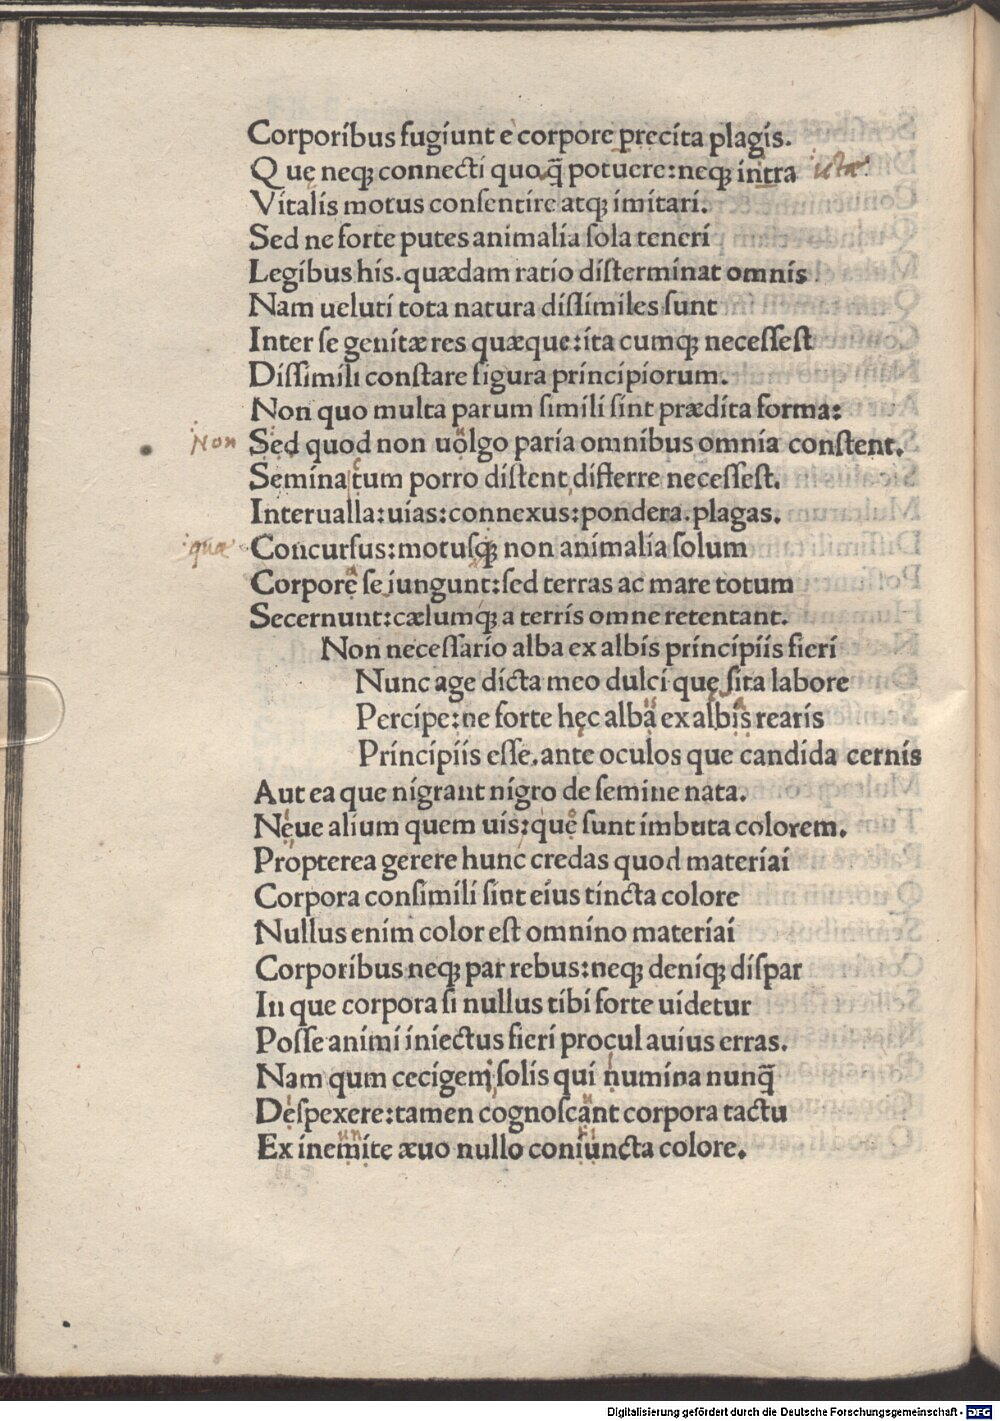 Corporibus fugiunt e corpore precita plagis.
Q uę neqꝫ connecti quoq̄ potuere: neqꝫ intra icta
Vitalis motus consentire atqꝫ imitari.
Sed ne forte putes animalia sola teneri
Legibus his. quædam ratio disterminat omnis
Nam ueluti tota natura dissimiles sunt
Inter se genitæ res quæque: ita cumqꝫ necessest
Dissimili constare figura principiorum.
Non quo multa parum simili sint prædita forma:
Non Sed quod non uolgo paria omnibus omnia constent.
Semina tum porro distent disterre necessest.
Interualla: uias: connexus: pondera. plagas.
quæ Concursus: motusqꝫ non animalia solum
Corpore se iungunt: sed terras ac mare totum
Secernunt: cælumqꝫ a terris omne retentant.
Non necessario alba ex albis principiis fieri
Nunc age dicta meo dulci quę sita labore
Percipe: ne forte hęc alba ex albis rearis
Principiis esse. ante oculos que candida cernis
Aut ea que nigrant nigro de semine nata.
Neue alium quem uis: que sunt imbuta colorem.
Propterea gerere hunc credas quod materiai
Corpora consimili sint eius tincta colore
Nullus enim color est omnino materiai
Corporibus neqꝫ par rebus: neqꝫ deniqꝫ dispar
In que corpora si nullus tibi forte uidetur
Posse animi iniectus fieri procul auius erras.
Nam qum cecigeni solis qui numina nunq̄
Despexere: tamen cognoscant corpora tactu
Ex inemite æuo nullo coniuncta colore.
Digitalisierung gefördert durch die Deutsche Forschungsgemeinschaft - DFG